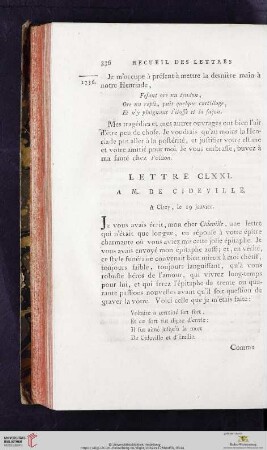 336 RECUEIL DES LETTRES
1736.
Je m'occupe à présent à mettre la dernière main à
notre Henriade,
Fesant ore un tendon,
Ore un repli, puis quelque cartilage,
Et n'y plaignant l'étoffe et la façon.
Mes tragédies et mes autres ouvrages ont bien l'air
d'être peu de chose. Je voudrais qu'au moins la Henriade
pût aller à la postérité, et justifier votre estime
et votre amitié pour moi. Je vous embrasse, buvez à
ma santé chez
LETTRE CLXXI.
A M. DE CIDEVILLE
A Cirey, le 19 janvier.
Je vous avais écrit, mon cher Cideville, une lettre
qui n'était que longue, en réponse à votre épître
charmante où vous aviez mis cette jolie épitaphe. Je
vous avais envoyé mon épitaphe aussi; et, en vérité,
ce style funéraire convenait bien mieux à moi chétif,
toujours faible, toujours languissant, qu'à vous
robuste héros de l'amour, qui vivrez long-temps
pour lui, et qui ferez l'épitaphe de trente ou quarante
passions nouvelles avant qu'il soit question de
graver la vôtre. Voici celle que je m'étais faite:
Voltaire a terminé son sort,
Et ce sort fut digne d'envie:
Il fut aimé jusqu'à la mort
De Cideville et d'Emilie.
Comme